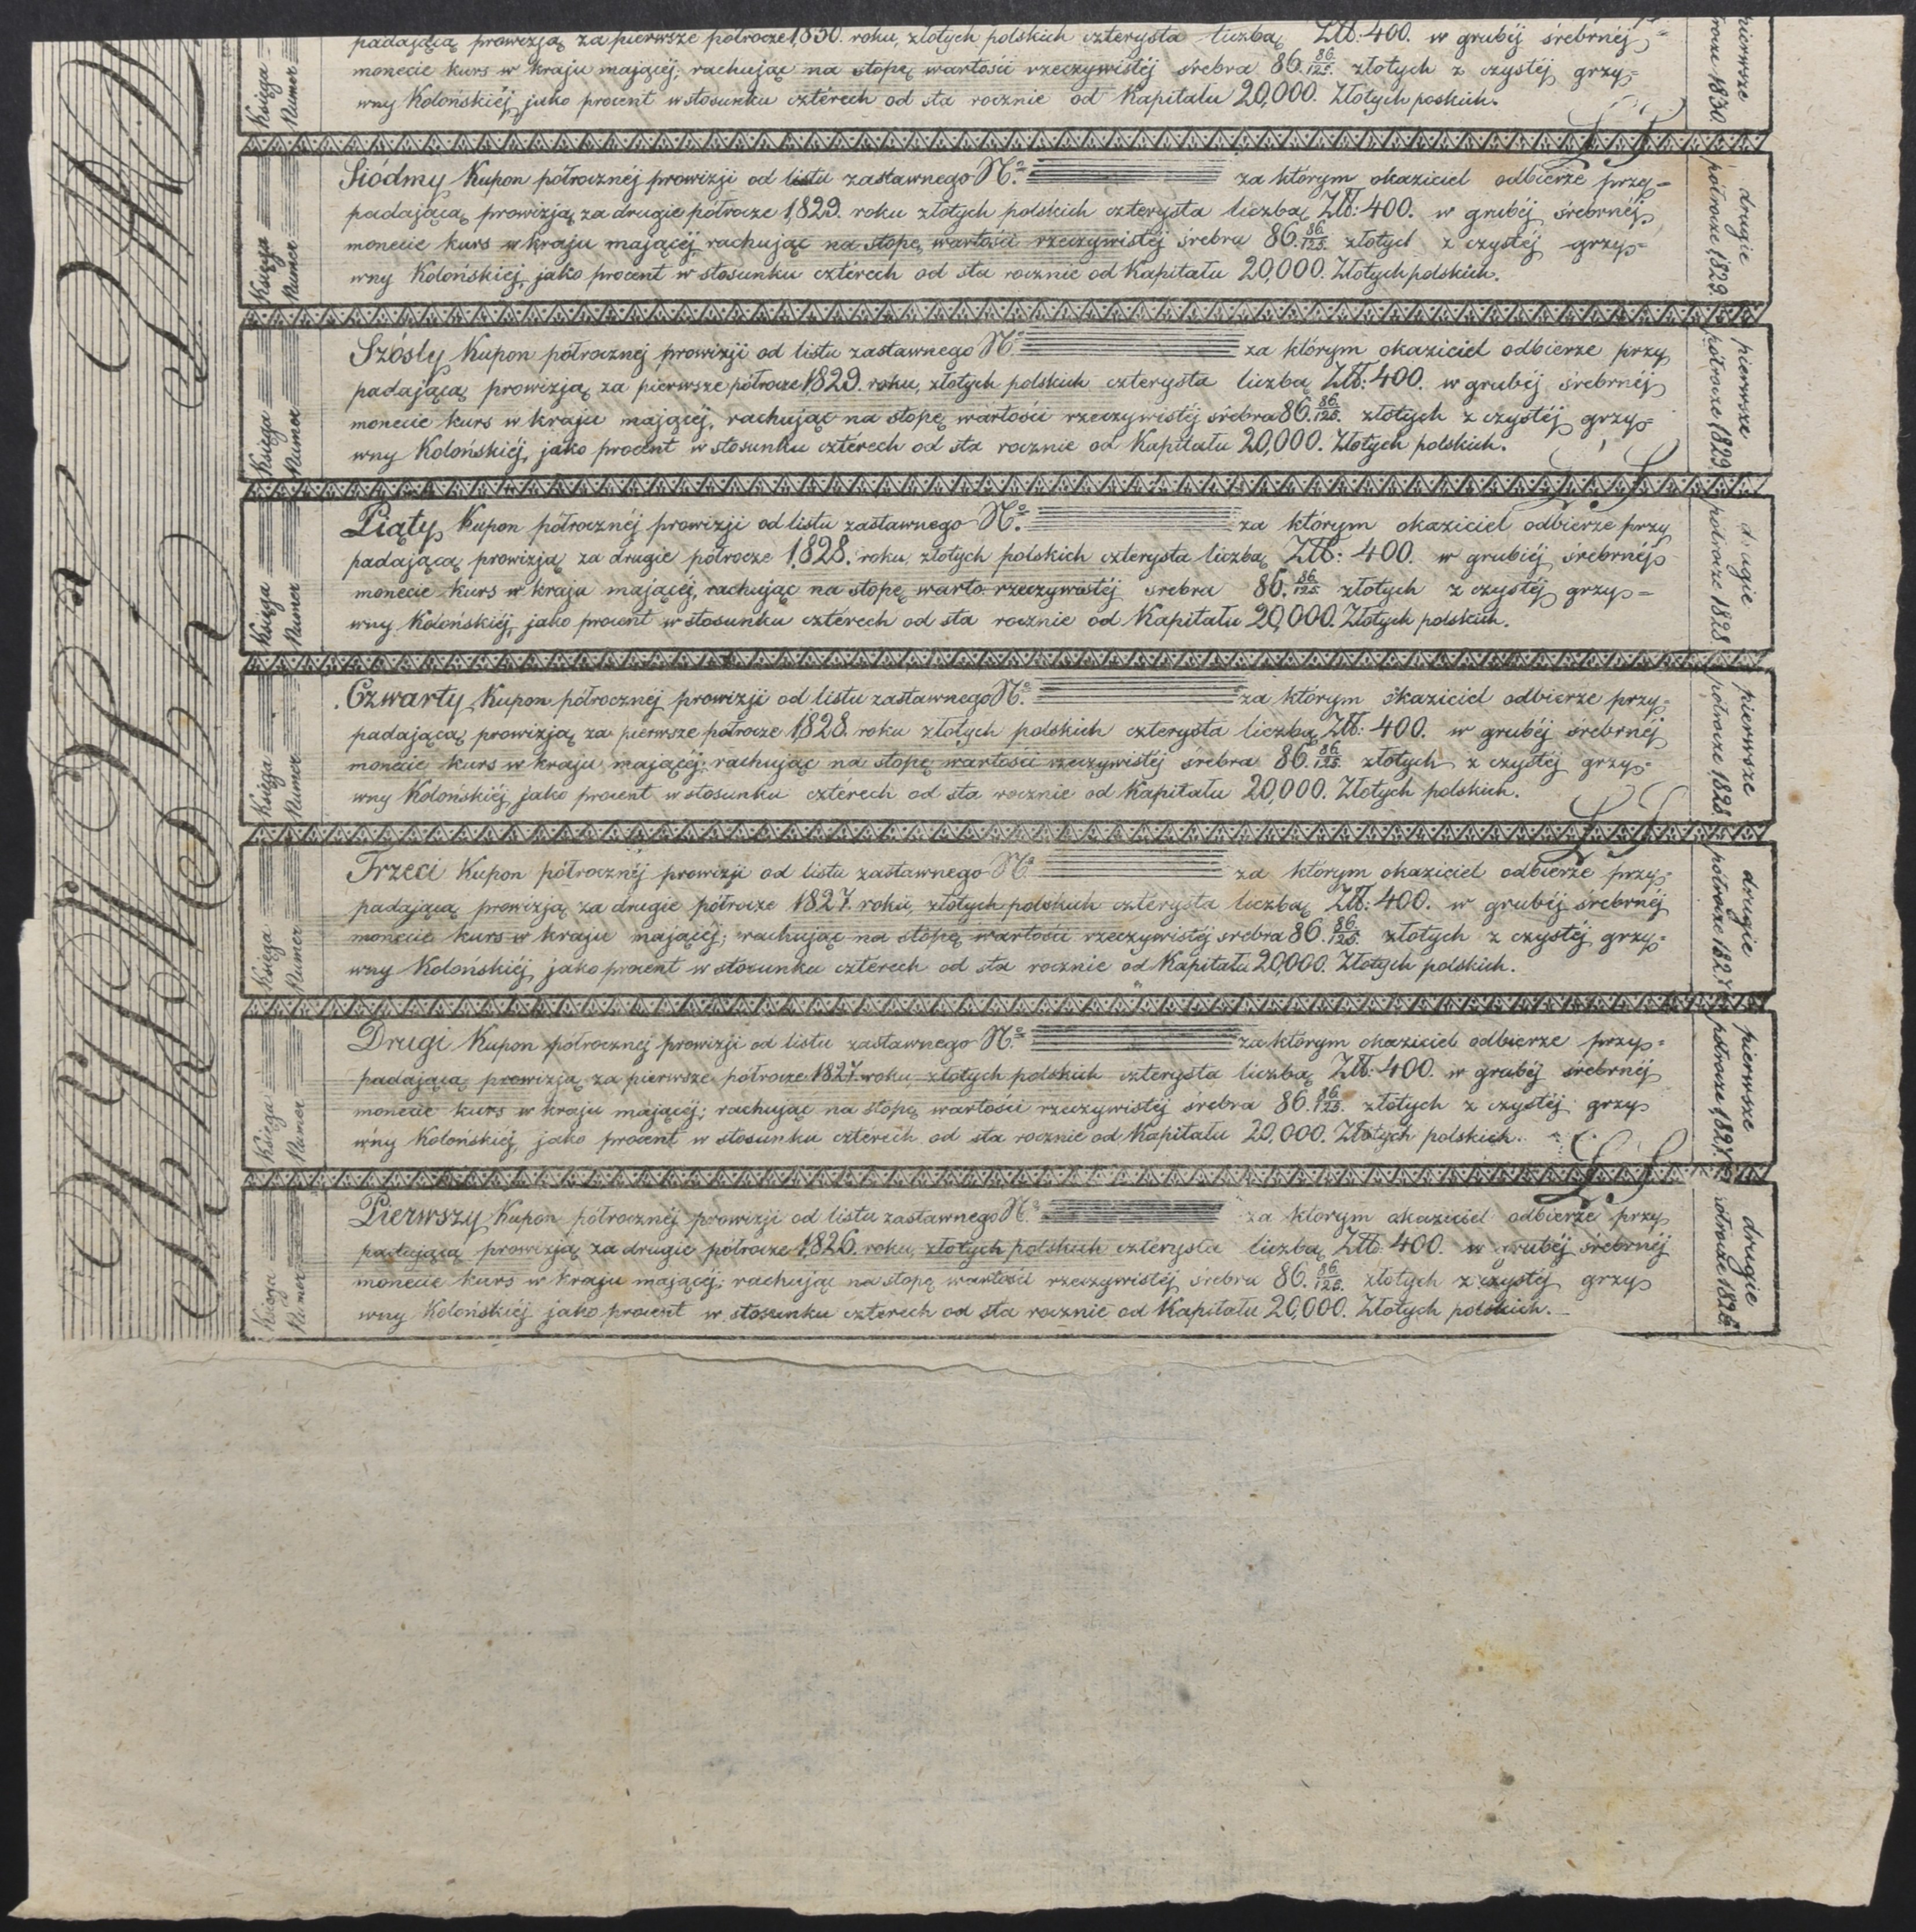 padającą prowizją za pierwsze półrocze 1830. roku, złotych polskich czterysta liczbą Złł: 400. w grubéj śrebrnéj
monecie kurs w kraju mającéj; rachując na stopę wartości rzeczywistéj śrebra 86. 86/125. złotych z czystéj grzy=
wny Kolońskiéj, jako procent w stosunku cztérech od sta rocznie od Kapitału 20,000. Złotych poskich.
Księga
Numer
pierwsze
półrocze 1830.
Siódmy Kupon półrocznéj prowizji od listu zastawnego No. za którym okaziciel odbierze przy=
padającą prowizją za drugie półrocze 1829. roku złotych polskich czterysta liczbą Złł: 400. w grubéj śrebrnéj
monecie kurs w kraju mającéj, rachując na stopę wartości rzeczywistéj śrebra 86. 86/125. złotych z czystéj grzy=
wny Kolońskiéj, jako procent w stosunku cztérech od sta rocznie od Kapitału 20,000. Złotych polskich.
Księga
Numer
drugie
półrocze 1829.
Szósty Kupon półrocznej prowizji od listu zastawnego No. za którym okaziciel odbierze przy
padającą prowizją za pierwsze półrocze 1829. roku, złotych polskich czterysta liczbą Złł: 400. w grubéj śrebrnéj
monecie kurs w kraju mającéj, rachując na stopę wartości rzeczywistéj śrebra 86. 86/125. złotych z czystéj grzy=
wny Kolońskiéj, jako procent w stosunku cztérech od sta rocznie od Kapitału 20,000. Złotych polskich.
Księga
Numer
pierwsze
półrocze 1829.
Piąty Kupon półrocznéj prowizji od listu zastawnego No. za którym okaziciel odbierze przy
padającą prowizją za drugie półrocze 1828. roku, złotych polskich czterysta liczbą Złł: 400. w grubiéj śrebrnéj
monecie kurs w kraju mającéj, rachując na stopę warto rzeczywistéj srebra 86. 86/125 złotych z czystéj grzy=
wny Kolońskiéj, jako procent w stosunku cztérech od sta rocznie od Kapitału 20,000. Złotych polskich.
Księga
Numer
drugie
półrocze 1828.
Czwarty Kupon półrocznéj prowizji od listu zastawnego No. za którym okaziciel odbierze przy=
padającą prowizją za pierwsze półrocze 1828. roku złotych polskich czterysta liczbą Złł: 400. w grubéj śrebrnéj
monecie kurs w kraju mającéj; rachując na stopę wartości rzeczywistéj śrebra 86. 86/125. złotych z czystéj grzy=
wny Kolońskiéj, jako procent w stosunku cztérech od sta rocznie od Kapitału 20,000. Złotych polskich.
Księga
Numer
pierwsze
półrocze 1828.
Trzeci Kupon półrocznéj prowizji od listu zastawnego No. za którym okaziciel odbierze przy=
padającą prowizją za drugie półrocze 1827. roku, złotych polskich czterysta liczbą Złł: 400. w grubéj śrebrnéj
monecie kurs w kraju mającéj; rachując na stopę wartości rzeczywistéj srebra 86. 86/125. złotych z czystéj grzy=
wny Kolońskiéj, jako procent w stosunku cztérech od sta rocznie od Kapitału 20,000. Złotych polskich.
Księga
Numer
drugie
półrocze 1827.
Drugi Kupon półrocznej prowizji od listu zastawnego No. za którym okaziciel odbierze przy=
padającą prowizją za pierwsze półrocze 1827. roku złotych polskich czterysta liczbą Złł: 400. w grubéj śrebrnéj
monecie kurs w kraju mającéj; rachując na stopę wartości rzeczywistéj śrebra 86. 86/125. złotych z czystéj grzy
wny Kolońskiéj, jako procent w stosunku cztérech od sta rocznie od Kapitału 20,000. Złotych polskich.
Księga
Numer
pierwsze
półrocze 1827.
Pierwszy Kupon półrocznéj prowizji od listu zastawnego No. za ktorym okaziciel odbierze przy
padającą prowizją za drugie półrocze 1826. roku, złotych polskich czterysta liczbą Złł: 400. w grubéj śrebrnéj
monecie kurs w kraju mającéj; rachując na stopę wartości rzeczywistéj śrebra 86. 86/125. złotych z czystéj grzy
wny Kolońskiéj jako procent w stosunku czterech od sta rocznie od Kapitału 20,000. Złotych polskich.
Księga
Numer
drugie
półrocze 1826